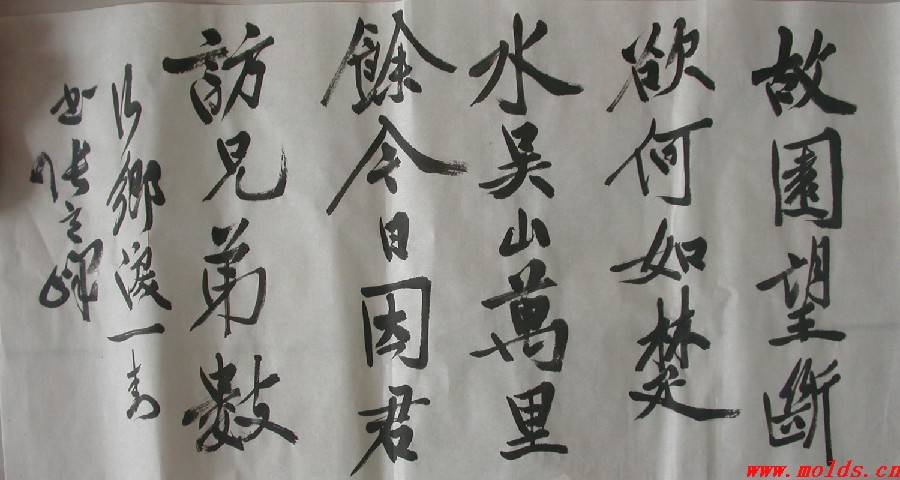 故園望斷
欲何如楚
水吳山萬里
餘今日因君
訪兄弟數
行鄉淚一封
书張
www.molds.cn